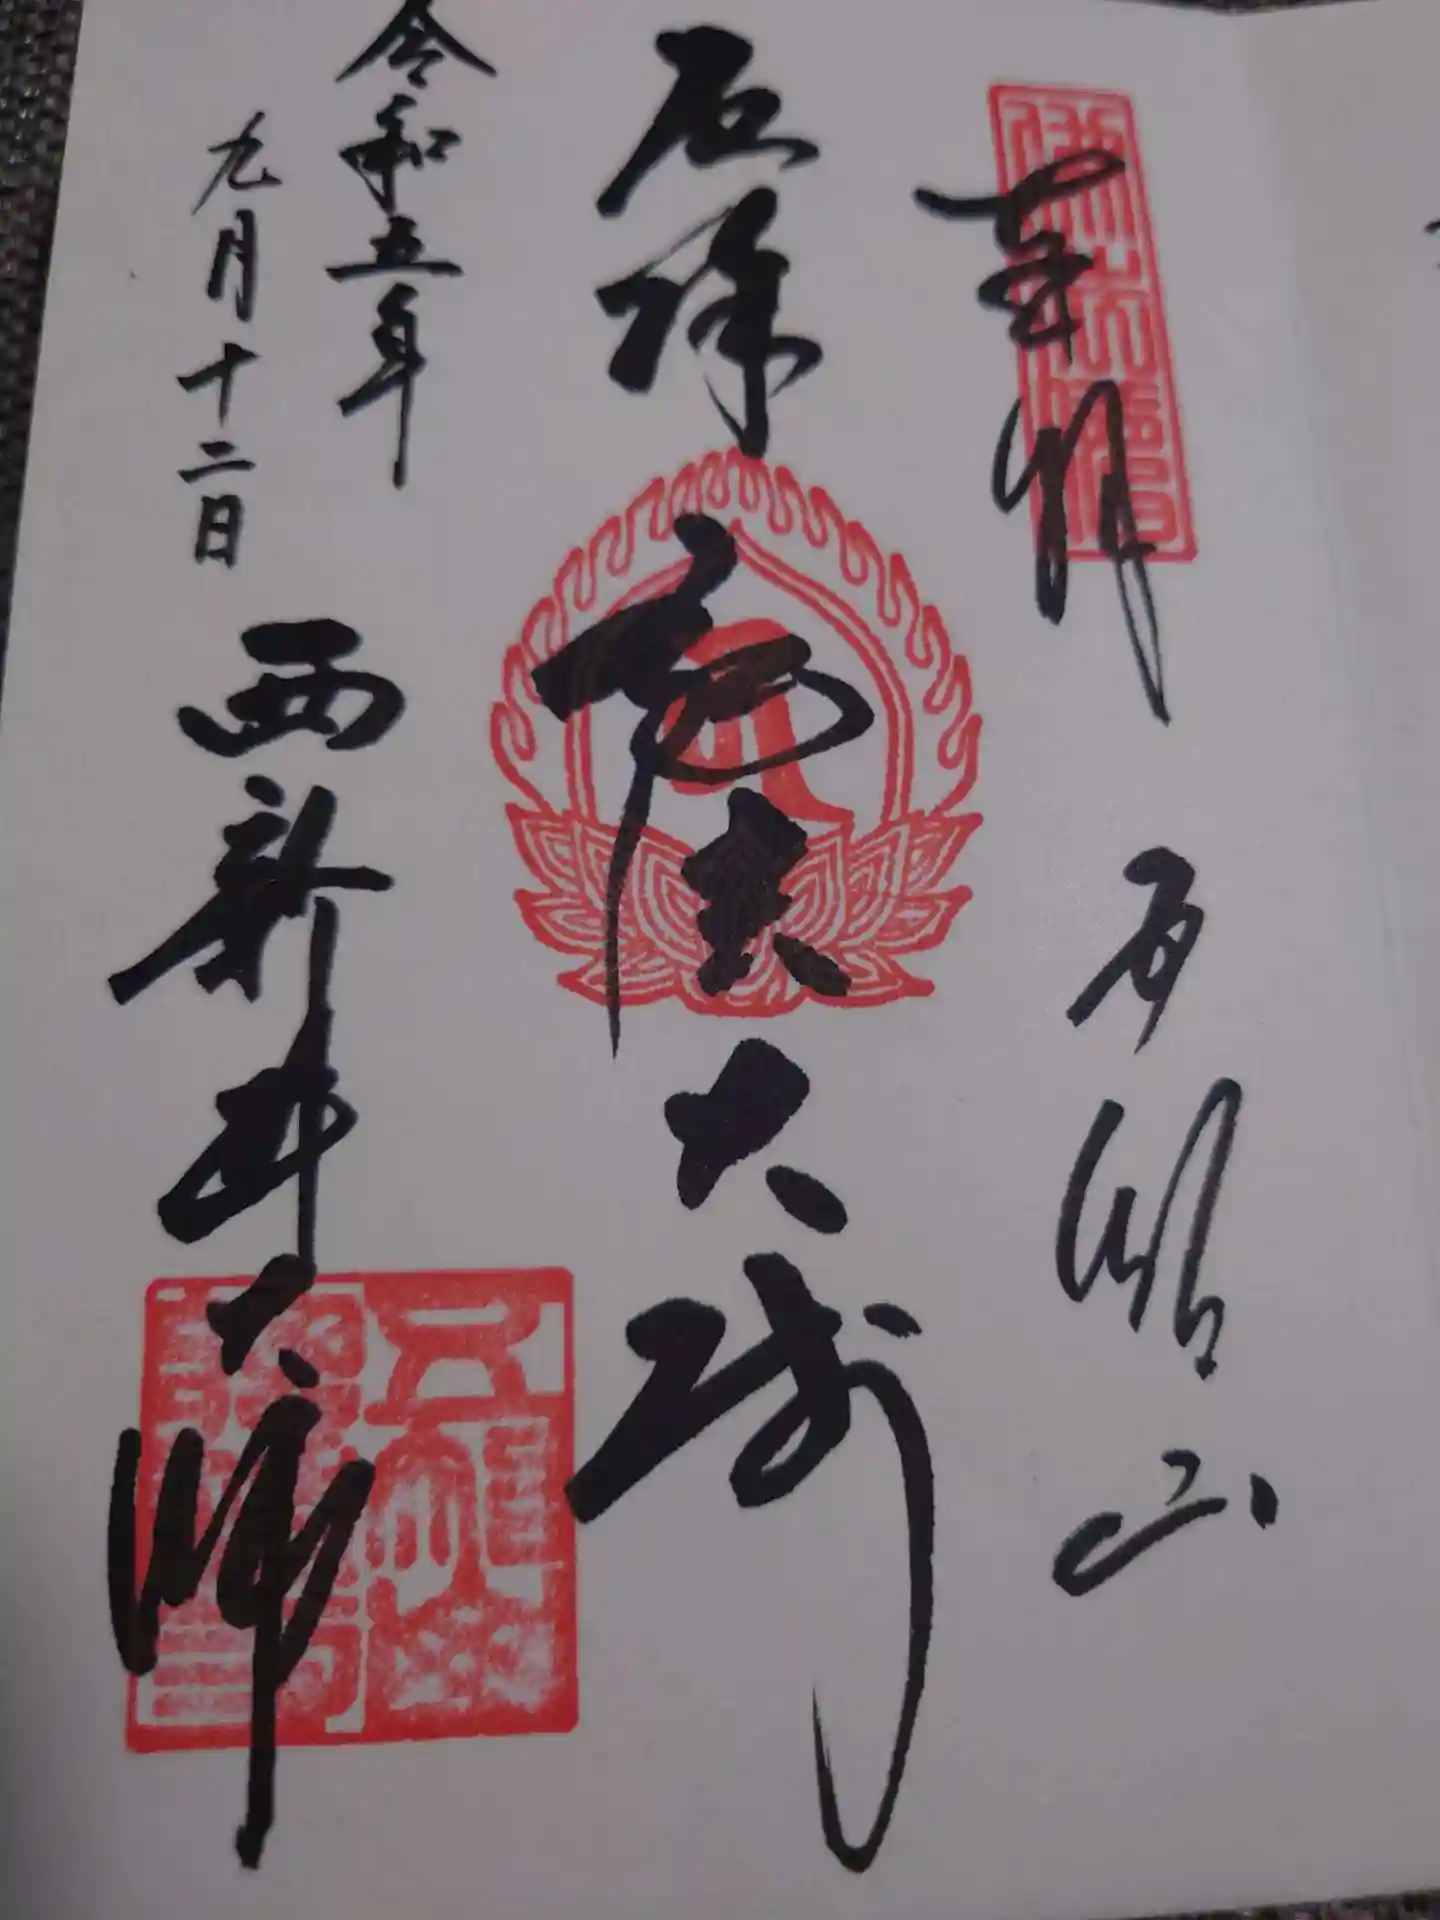 奉拝 五智山
厄除 弘法大師
令和五年
九月十二日
西新井大師